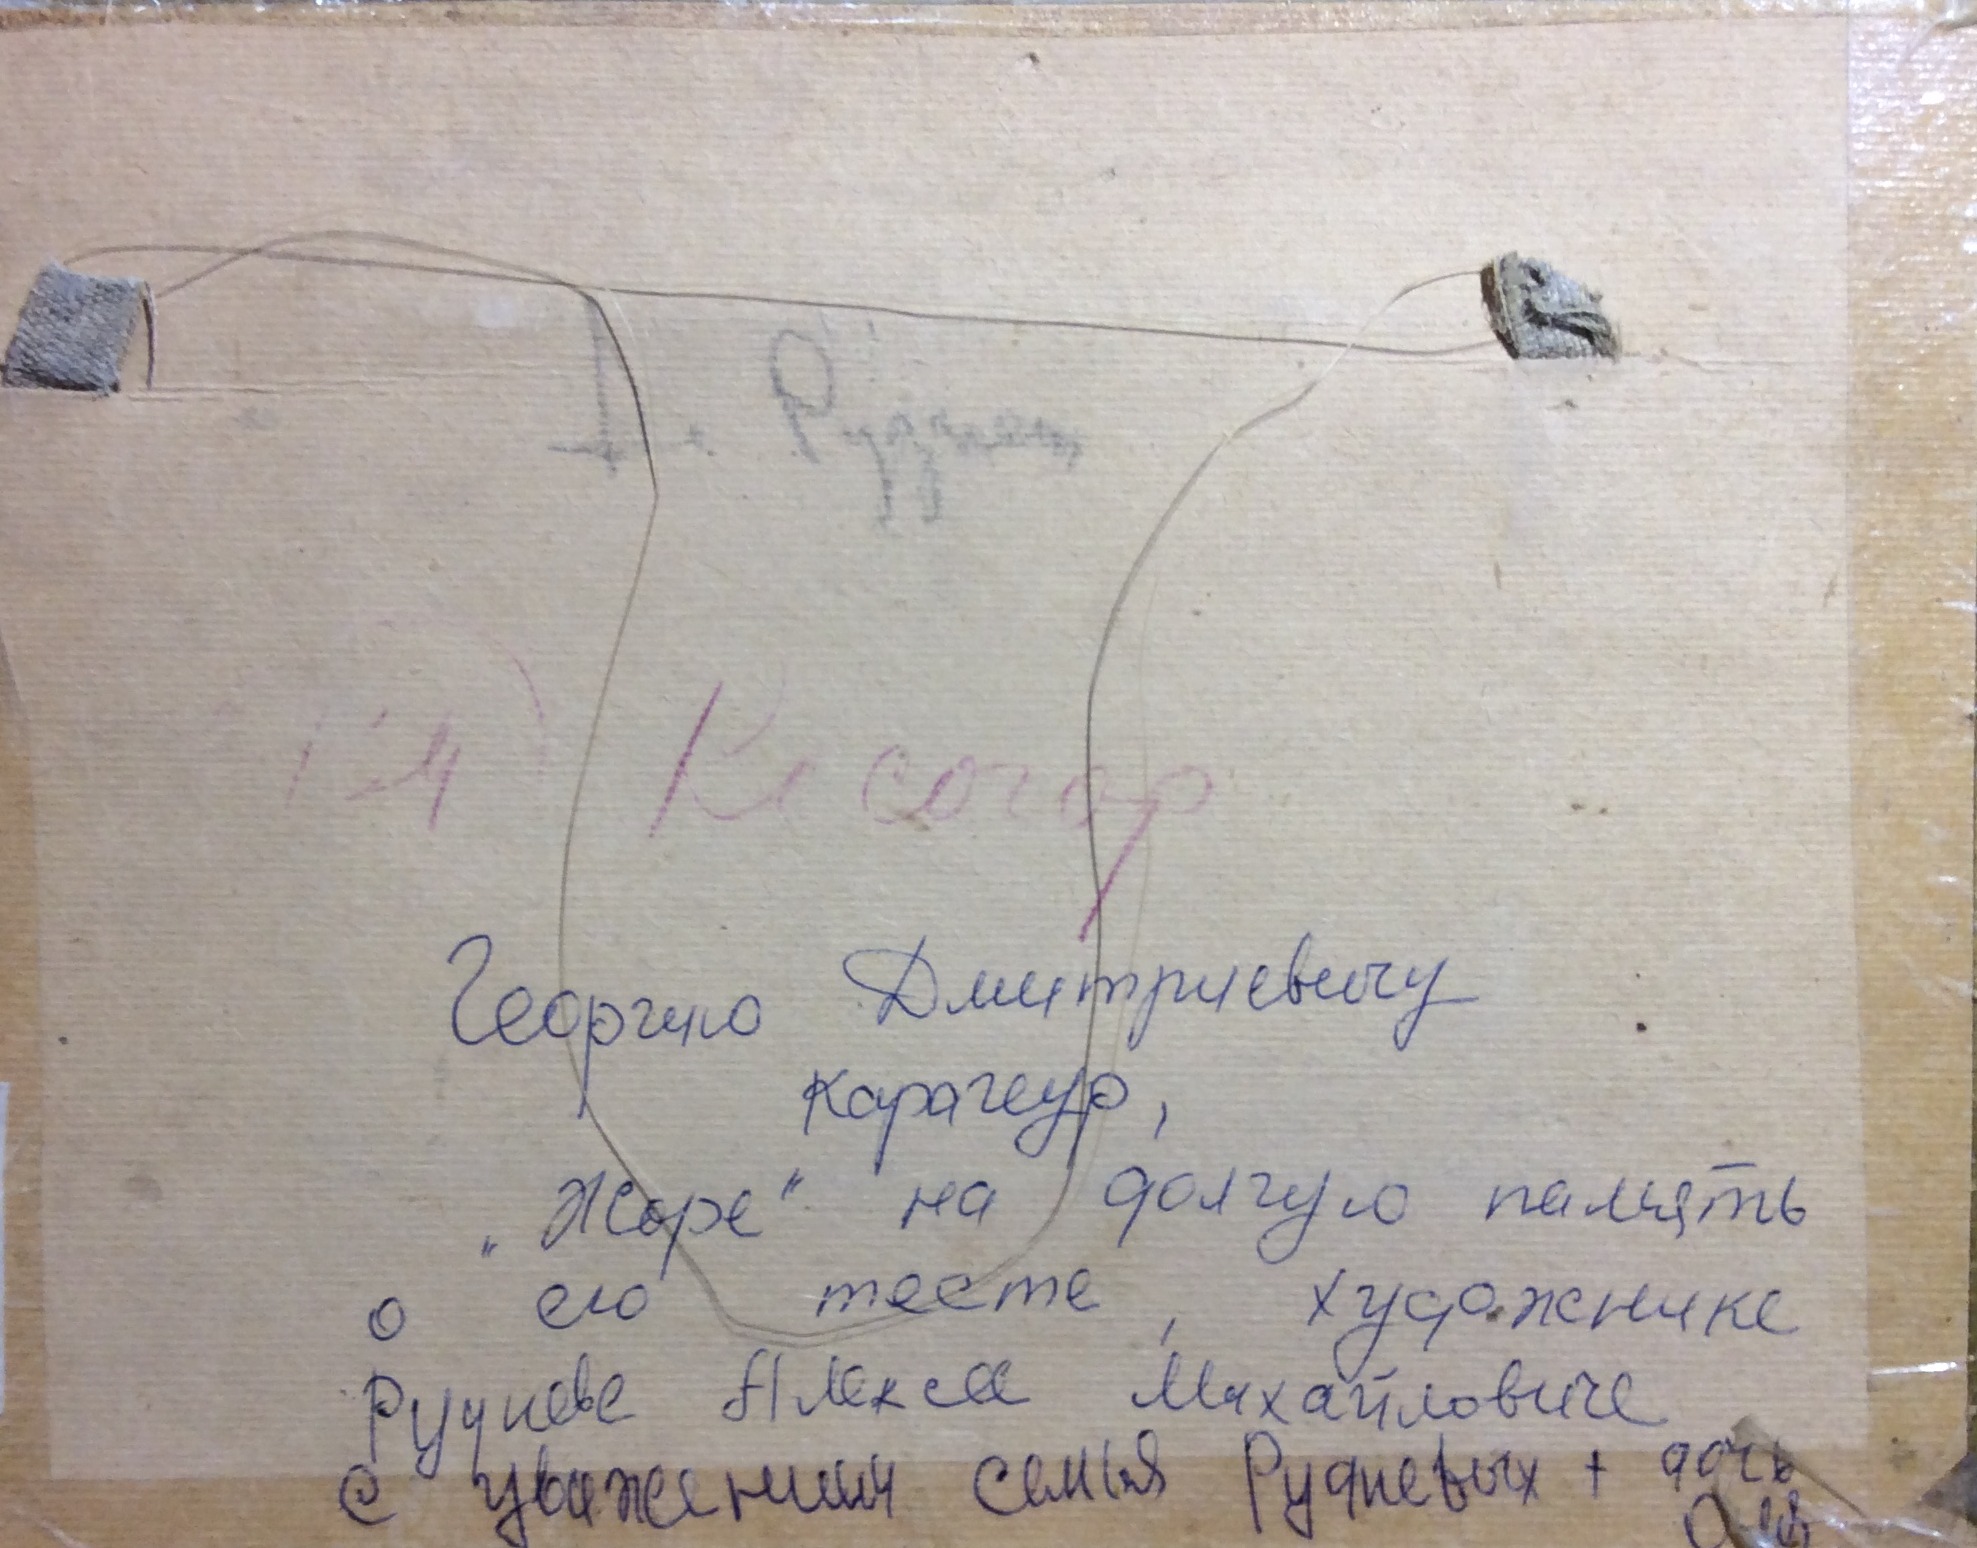 А. Руднев
Кисогор
Георгию Дмитриевичу
Карагеур,
„Жоре“ на долгую память
о его тесте, художнике
Рудневе Алексее Михайловиче
с уважением семья Рудневых + дочь